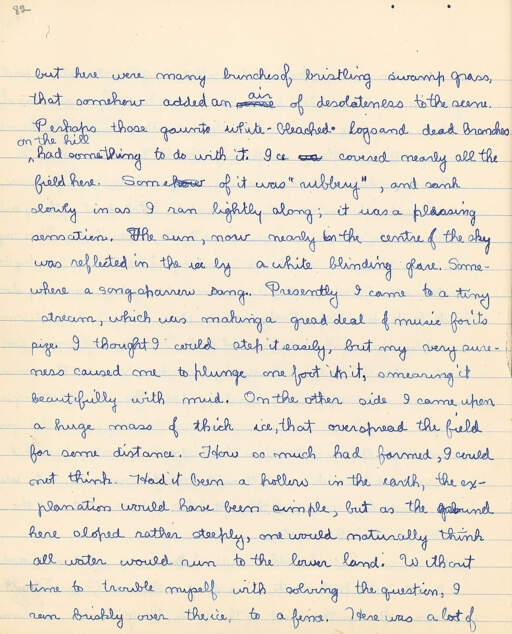 82
but here were many bunches of bristling swamp grass,
that somehow added an air of desolateness to the scene.
Perhaps those gaunt white-bleached logs and dead branches
on the hill
had something to do with it. Ice covered nearly all the
field here. Some of it was "rubbery", and sank
slowly in as I ran lightly along; it was a pleasing
sensation. The sun, now nearly in the centre of the sky
was reflected in the ice by a white blinding glare. Some-
where a song sparrow sang. Presently I came to a tiny
stream, which was making a great deal of music for its
size. I thought I could step it easily, but my very sure-
ness caused me to plunge one foot in it, smearing it
beautifully with mud. On the other side I came upon
a huge mass of thick ice, that overspread the field
for some distance. How so much had formed, I could
not think. Had it been a hollow in the earth, the ex-
planation would have been simple, but as the ground
here sloped rather steeply, one would naturally think
all water would run to the lower land. Without
time to trouble myself with solving the question, I
ran briskly over the ice, to a fence. Here was a lot of